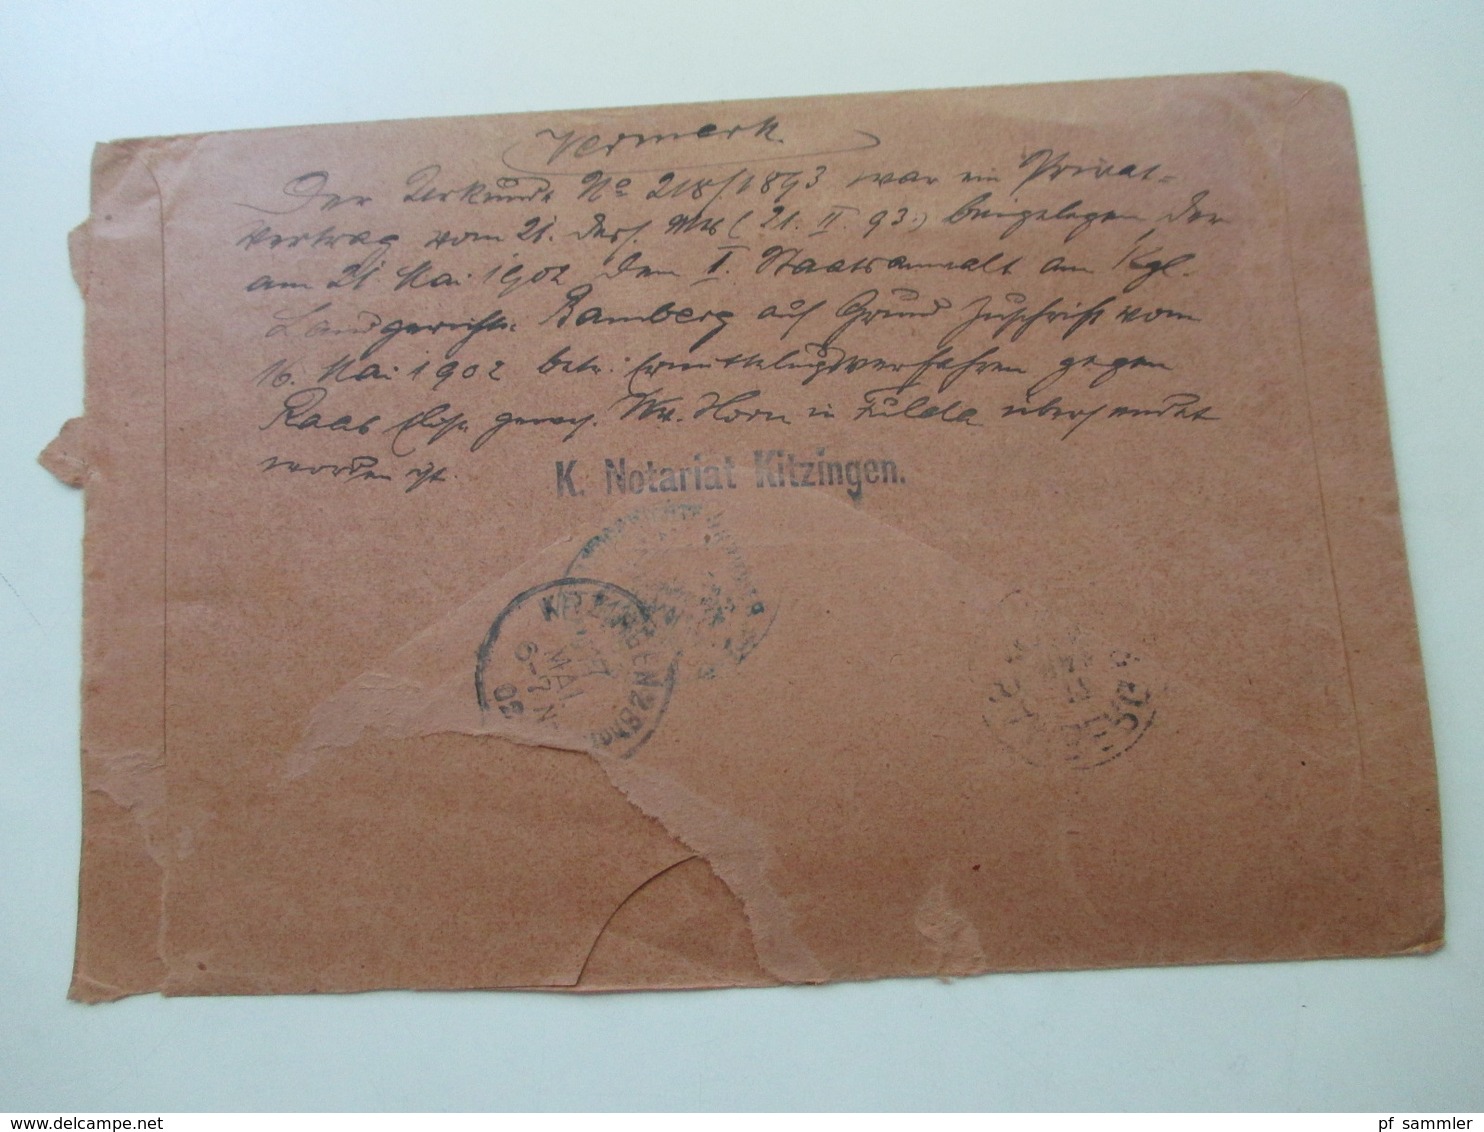 Vermerk
Der Urkunde No 218/1893 war ein Privat-
vertrag vom 21. desf. Mts (21. II. 93.) beigelegen, der
am 21. Mai 1902 dem I. Staatsanwalt am Kgl.
Landgerichte Bamberg auf Grund Zuschrift vom
16. Mai 1902 betr. Ermittelungsverfahren gegen
Raab Elise gegen Horn in Fulda übersendet
worden ist.
K. Notariat Kitzingen.
KITZINGEN 2
MAI
6-7 N
02
pf sammler